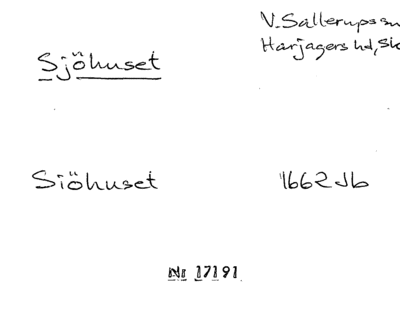 V. Sallerups sn
Harjagers hd, Sk
Sjöhuset
Siöhuset
1662 Jb
Nr 17191